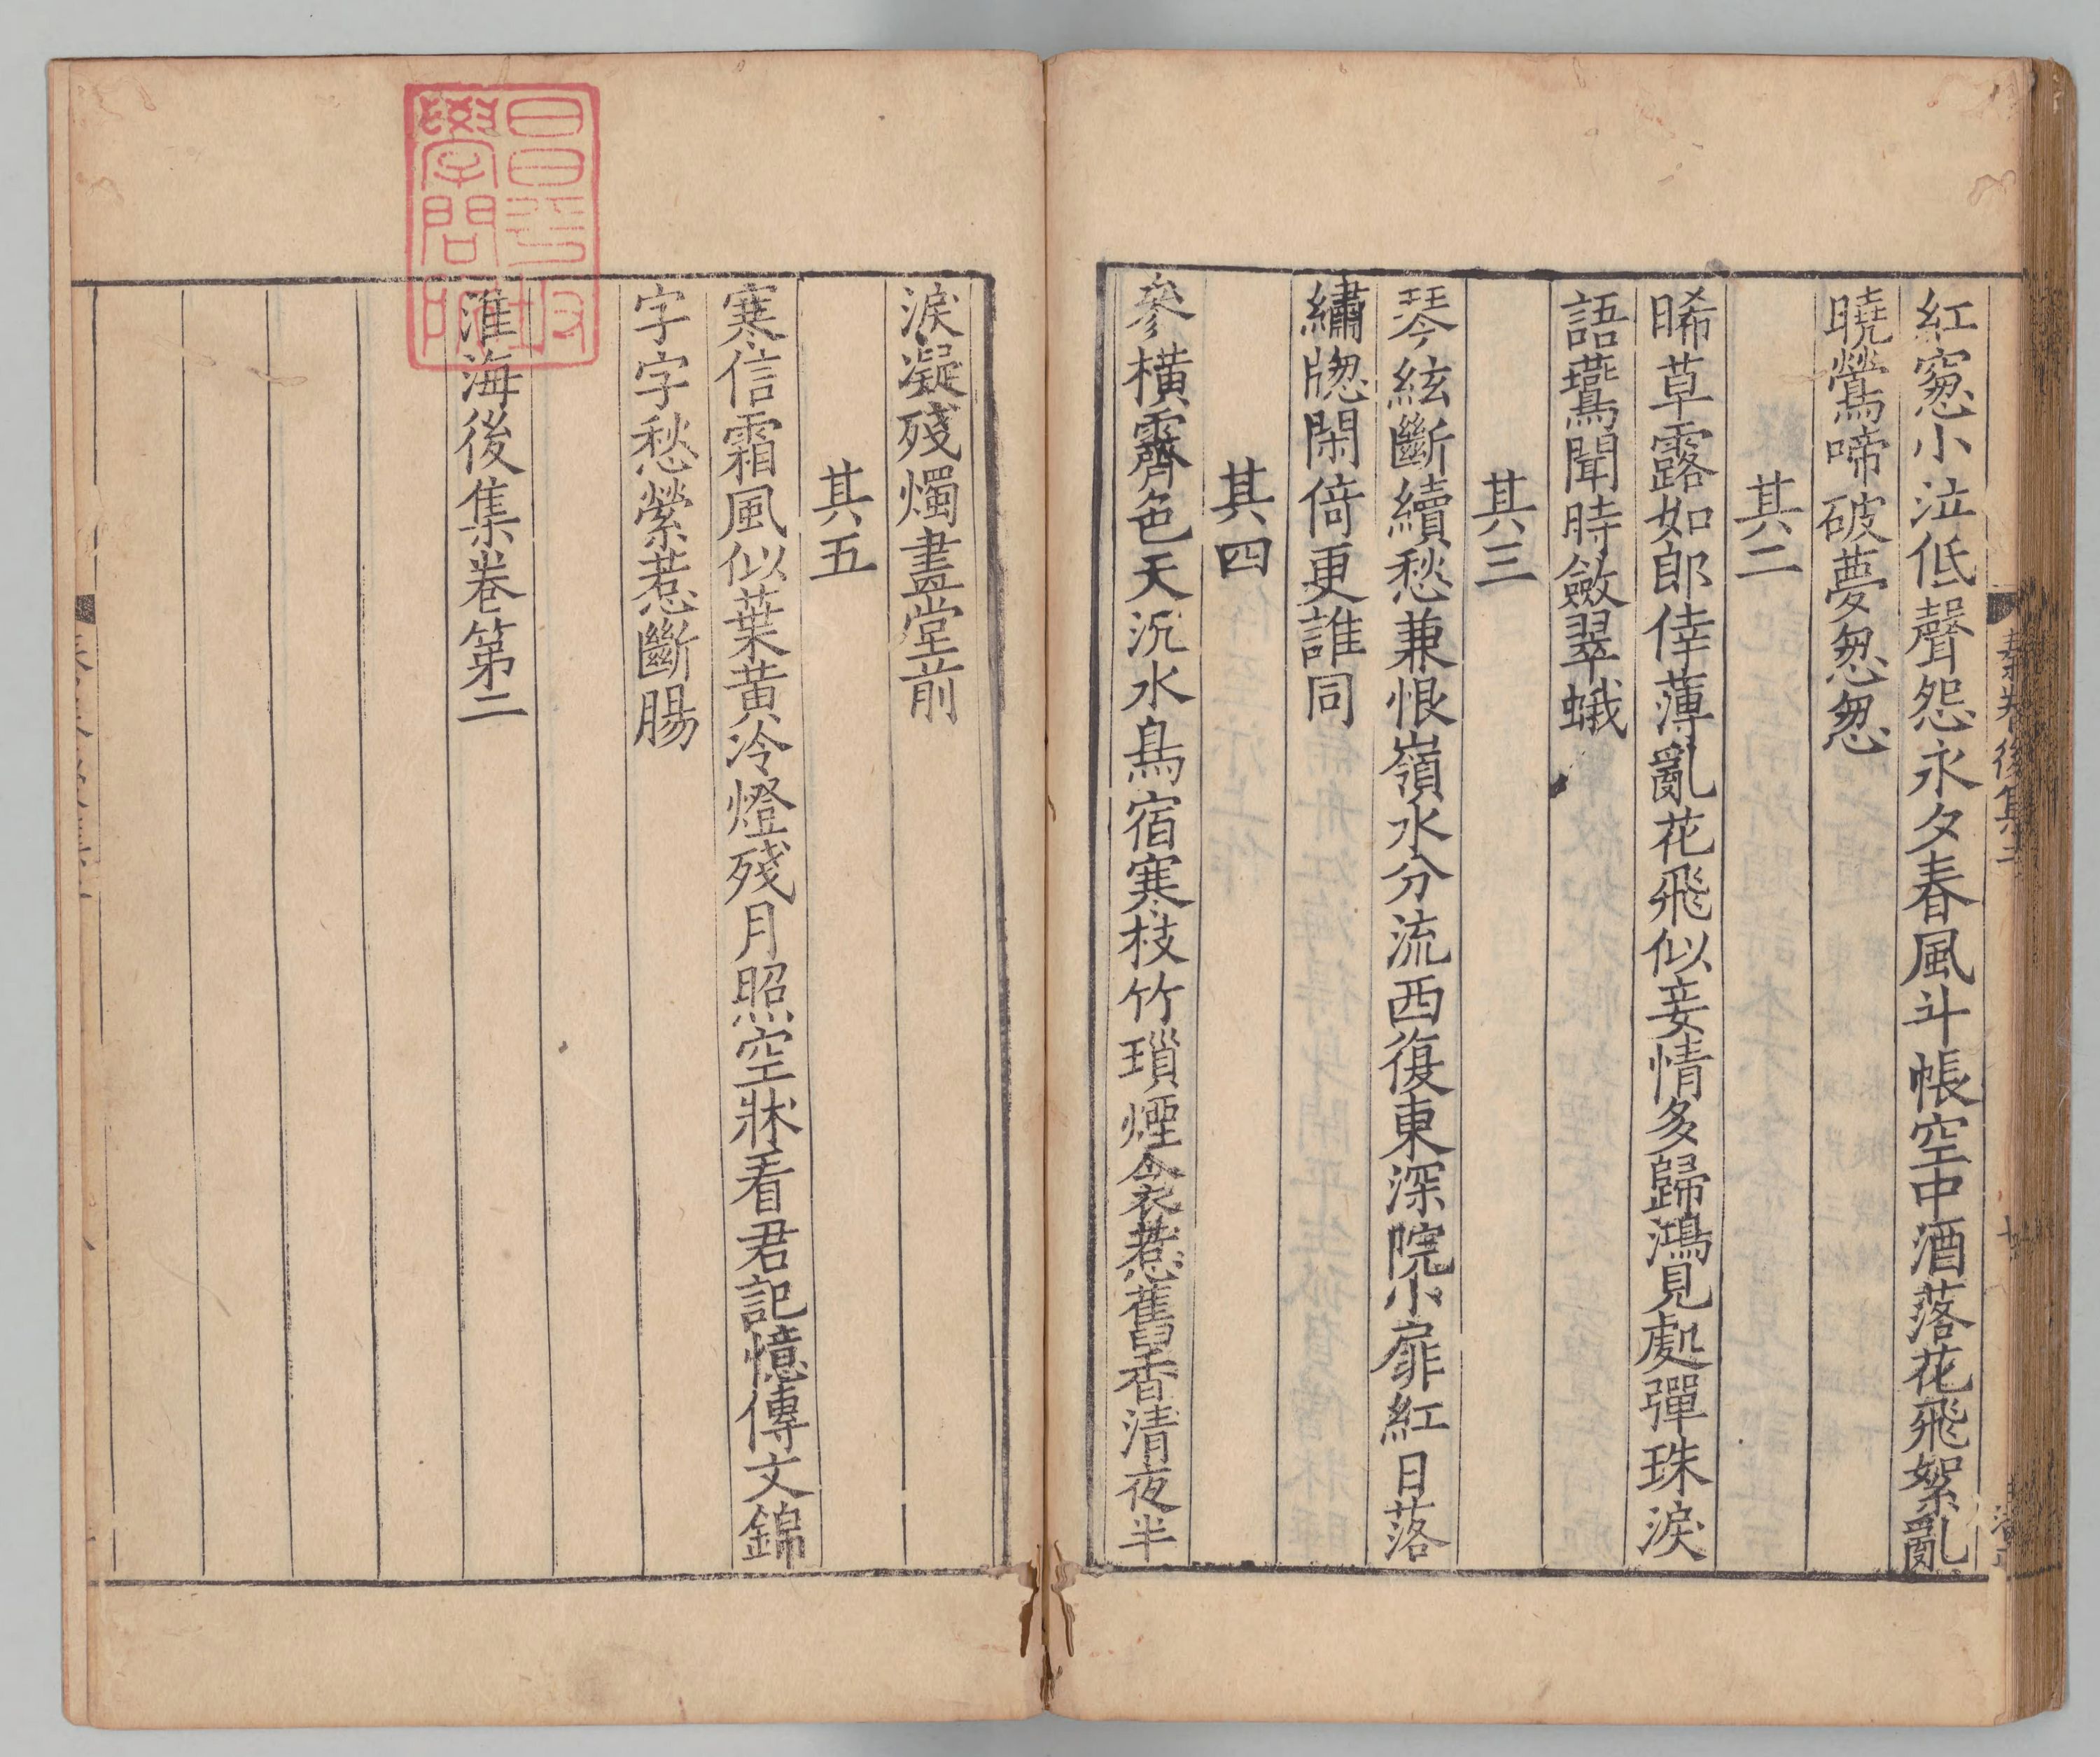 紅窓小泣低聲怨永夕春風斗帳空中酒落花飛絮亂
曉鶯啼破夢怱怱
其二
晞草露如郎倖薄亂花飛似妾情多歸鴻見處彈珠淚
語鷰聞時斂翠蛾
其三
琴絃斷續愁兼恨嶺水分流西復東深院小扉紅日落
繡牕閑倚更誰同
其四
參橫霽色天沉水鳥宿寒枝竹瑣煙衾惹舊香清夜半
淚凝殘燭盡堂前
其五
寒信霜風似葉黃冷燈殘月照空牀看君記憶傳文錦
字字愁縈惹斷腸
淮海後集卷第二
昌平坂
學問所